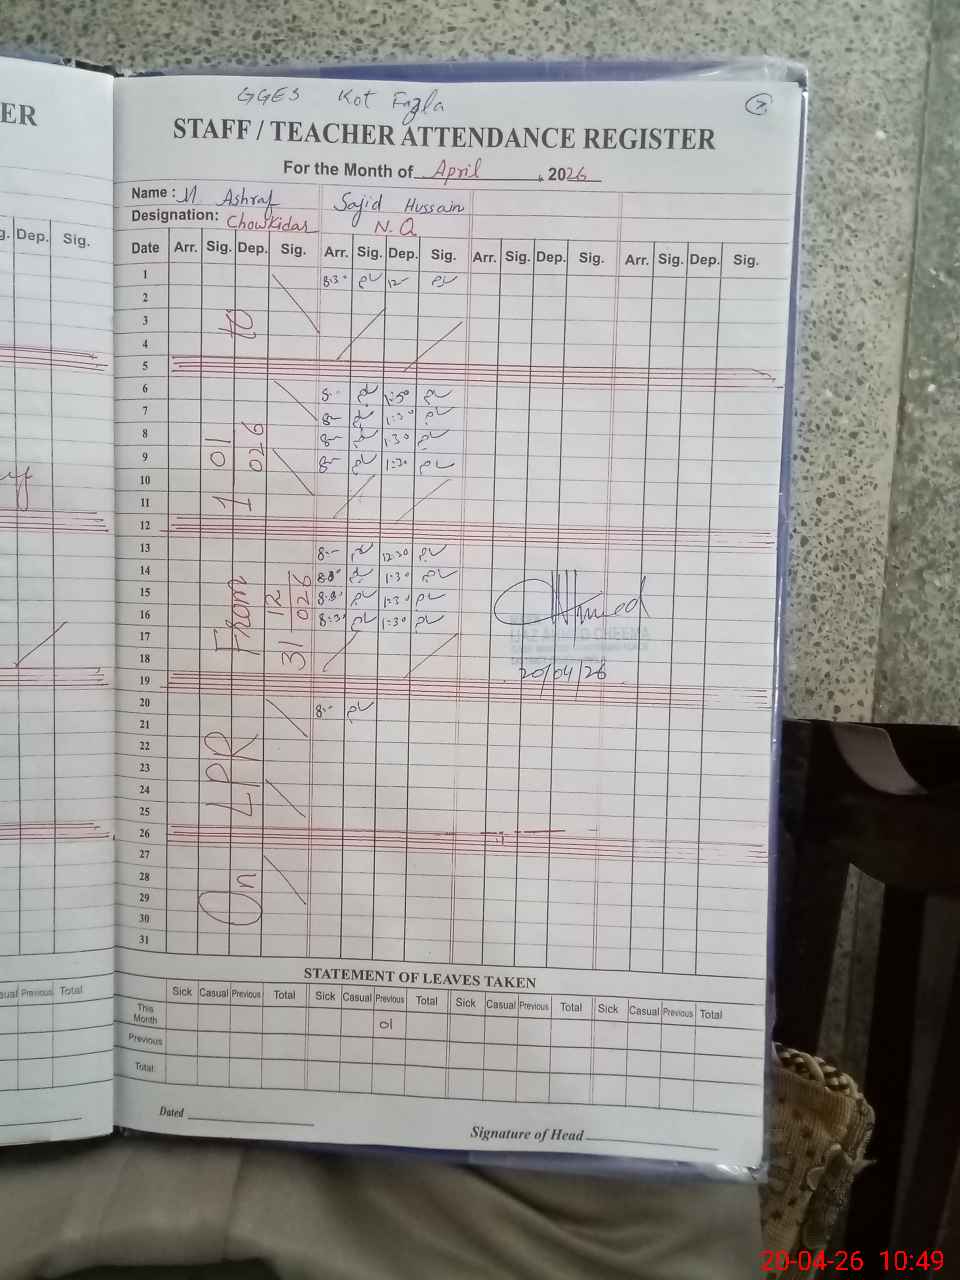 GGES Kot Fazla
7
STAFF / TEACHER ATTENDANCE REGISTER
For the Month of April, 2026
Name : M Ashraf Sajid Hussain
Designation: Chowkidar N.Q
Date Arr. Sig. Dep. Sig. Arr. Sig. Dep. Sig. Arr. Sig. Dep. Sig. Arr. Sig. Dep. Sig.
1 8:30 12
2
3
4
5
6 8-- 1:30
7 8-- 1:30
8 8-- 1:30
9 8-- 1:30
10
11
12
13 8-- 12:30
14 8:30 1:30
15 8:30 1:30
16 8:30 1:30
17
18
19
20 8--
21
22
23
24
25
26
27
28
29
30
31
On LPR From 1 01 026 to
31 12 026
Ahmed
20/04/26
STATEMENT OF LEAVES TAKEN
Sick Casual Previous Total Sick Casual Previous Total Sick Casual Previous Total Sick Casual Previous Total
This Month 01
Previous
Total:
Dated
Signature of Head
ER
g. Dep. Sig.
sual Previous Total
20-04-26 10:49